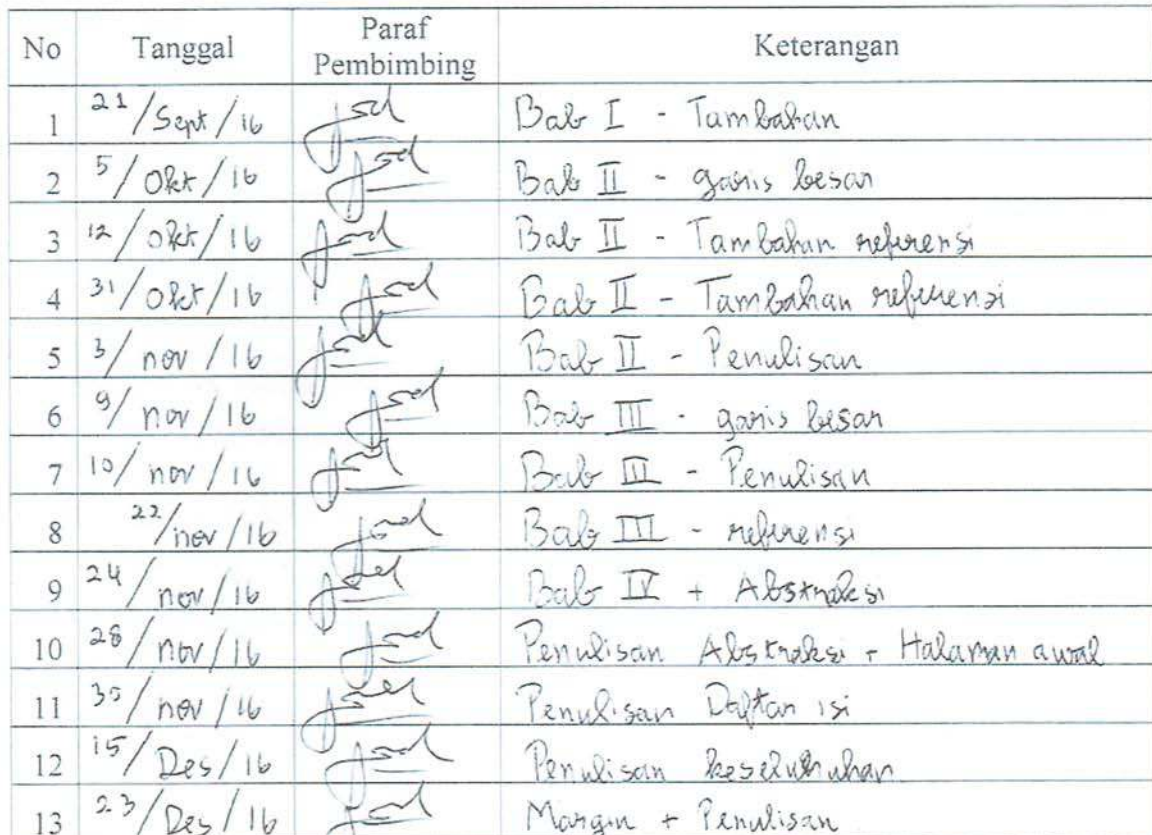 No Tanggal Paraf Pembimbing Keterangan
1 21/Sept/16 Bab I - Tambahan
2 5/Okt/16 Bab II - garis besar
3 12/Okt/16 Bab II - Tambahan referensi
4 31/Okt/16 Bab II - Tambahan referensi
5 3/nov/16 Bab II - Penulisan
6 9/nov/16 Bab III - garis besar
7 10/nov/16 Bab III - Penulisan
8 22/nov/16 Bab III - referensi
9 24/nov/16 Bab IV + Abstraksi
10 28/nov/16 Penulisan Abstraksi + Halaman awal
11 30/nov/16 Penulisan Daftar isi
12 15/Des/16 Penulisan keseluruhan
13 23/Des/16 Margin + Penulisan